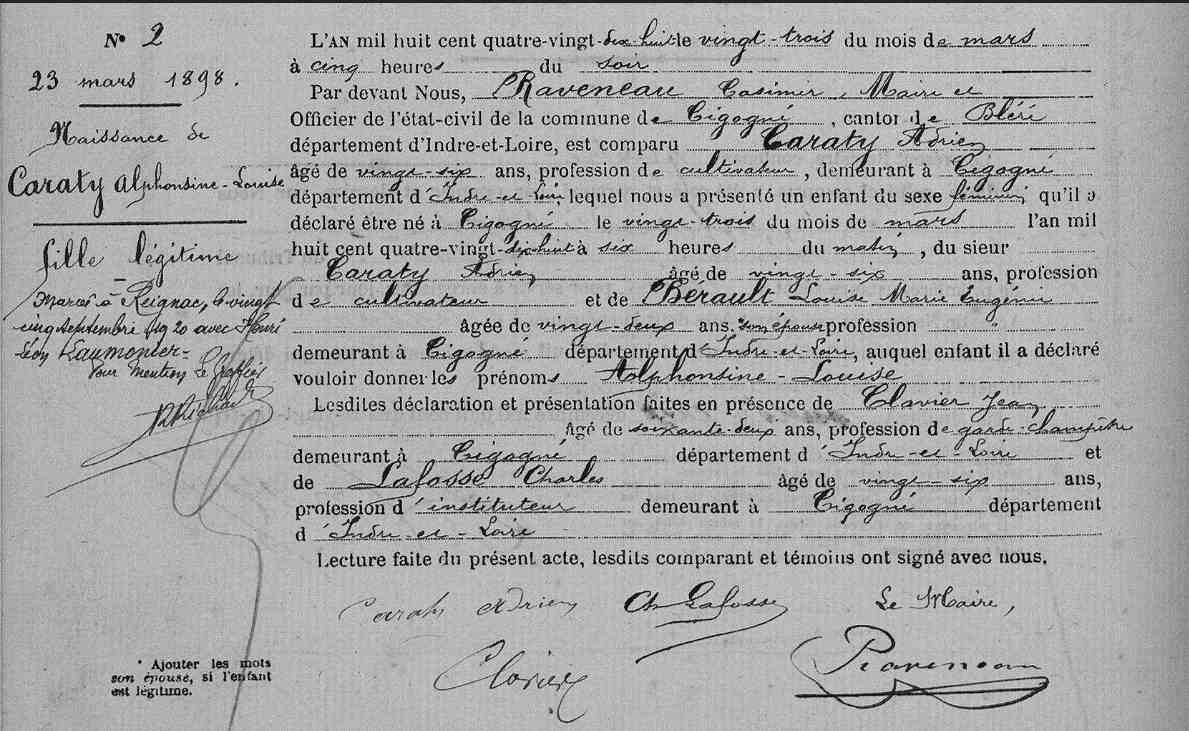 N° 2
23 mars 1898.
Naissance de
Caraty Alphonsine-Louise
fille légitime
Mariée à Reignac, le vingt
cinq septembre 1920 avec Henri
Léon Laumonier-
Pour mention Le Greffier
L'AN mil huit cent quatre-vingt-dix-huit le vingt-trois du mois de mars
à cinq heures du soir
Par devant Nous, Raveneau Casimir, Maire et
Officier de l'état-civil de la commune de Cigogné, canton de Bléré
département d'Indre-et-Loire, est comparu Caraty Adrien
âgé de vingt-six ans, profession de cultivateur, demeurant à Cigogné
département d'Indre-et-Loire lequel nous a présenté un enfant du sexe féminin, qu'il a
déclaré être né à Cigogné le vingt-trois du mois de mars l'an mil
huit cent quatre-vingt-dix-huit à six heures du matin, du sieur
Caraty Adrien âgé de vingt-six ans, profession
de cultivateur et de Bérault Louise Marie Eugénie
âgée de vingt-deux ans. son épouse profession "
demeurant à Cigogné département d'Indre-et-Loire, auquel enfant il a déclaré
vouloir donner les prénoms Alphonsine-Louise
Lesdites déclaration et présentation faites en présence de Clavier Jean
âgé de soixante-deux ans, profession de garde-champêtre
demeurant à Cigogné département d'Indre-et-Loire et
de Lafosse Charles âgé de vingt-six ans,
profession d'instituteur demeurant à Cigogné département
d'Indre-et-Loire
Lecture faite du présent acte, lesdits comparant et témoins ont signé avec nous.
Caraty Adrien Ch Lafosse Le Maire,
Clavier Raveneau
* Ajouter les mots
son épouse, si l'enfant
est légitime.